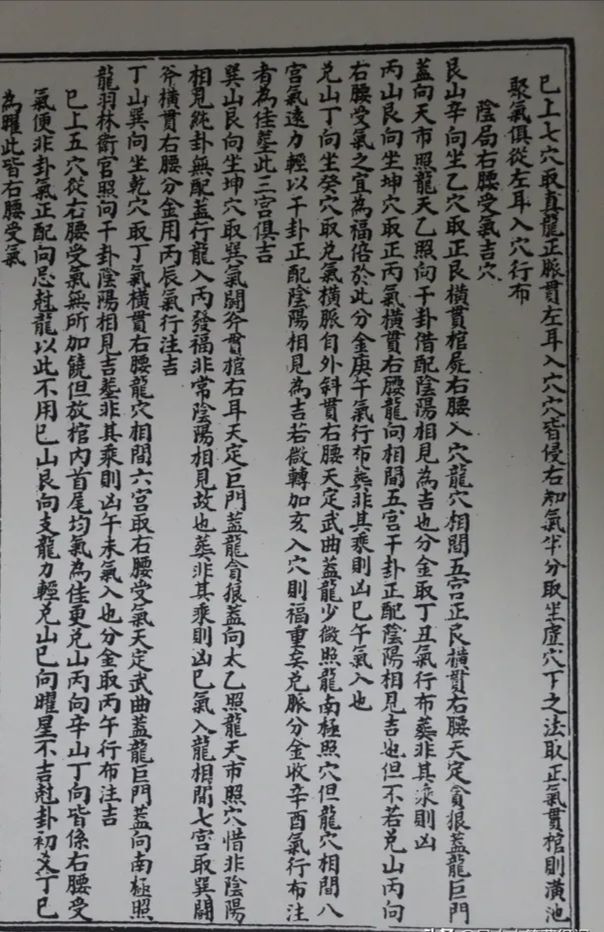 已上七穴取真龍正脈貫左耳入穴穴皆侵右知氣半分取坐虛穴下之法取正氣貫棺則潢池
聚氣俱從左耳入穴行布
陰局右腰受氣吉穴
艮山辛向坐乙穴取正艮橫貫棺屍右腰入穴龍穴相間五宮正艮橫貫右腰天定貪狼蓋龍巨門
蓋向天市照龍天乙照向干卦借配陰陽相見為吉也分金取丁丑氣行布葬非其乘則凶
丙山艮向坐坤穴取正丙氣橫貫右腰龍向相間五宮干卦正配陰陽相見吉也但不若兑山丙向
右腰受氣之宜為福倍於此分金庚午氣行布葬非其乘則凶巳午氣入也
兑山丁向坐癸穴取兑氣橫脈自外斜貫右腰天定武曲蓋龍少微照龍南極照穴但龍穴相間八
宮氣遠力輕以干卦正配陰陽相見為吉若微轉加亥入穴則福重矣兑脈分金收辛酉氣行布注
者為佳塟此三宮俱吉
巽山艮向坐坤穴取巽氣闢斧貫棺右耳天定巨門蓋龍貪狼蓋向太乙照龍天市照穴惜非陰陽
相見純卦無配蓋行龍入丙發福非常陰陽相見故也葬非其乘則凶巳氣入龍相間七宮取巽闢
斧橫貫右腰分金用丙辰氣行注吉
丁山巽向坐乾穴取丁氣橫貫右腰龍穴相間六宮取右腰受氣天定武曲蓋龍巨門蓋向南極照
龍羽林衛官照向干卦陰陽相見吉塟非其乘則凶午未氣入也分金取丙午行布注吉
已上五穴從右腰受氣無所加饒但放棺內首尾均氣為佳更兑山丙向辛山丁向皆係右腰受
氣便非卦氣正配向忌尅龍以此不用巳山艮向支龍力輕兑山巳向曜星不吉尅卦初爻丁巳
為曜此皆右腰受氣